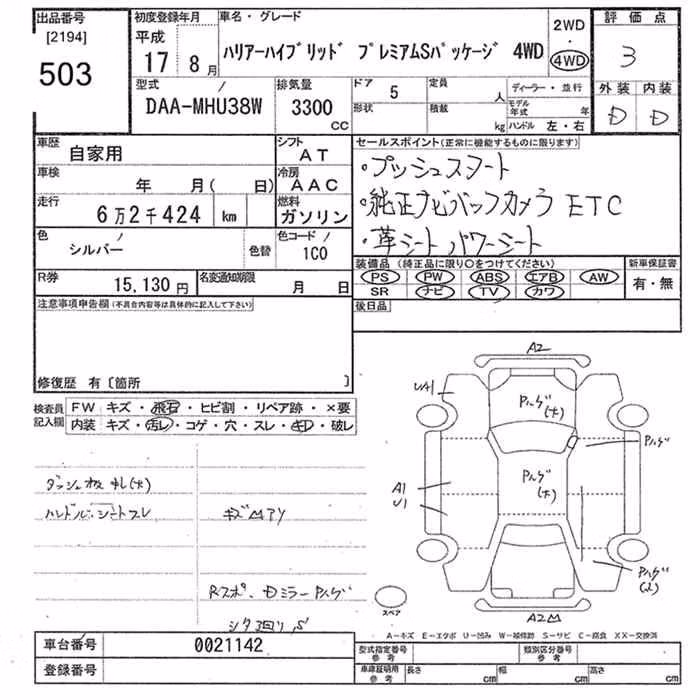 出品番号 初度登録年月 車名・グレード 2WD 評価点
[2194] 平成 ・
503 17 8月 ハリアーハイブリッド プレミアムSパッケージ 4WD 4WD 3
型式 排気量 ドア 5 定員 人 ディーラー・並行 外装 内装
DAA-MHU38W 3300 CC 形状 積載 kg モデル年式 年 D D
ハンドル 左・右
車歴 自家用 シフト AT セールスポイント(正常に機能するものに限ります)
車検 年 月( 日) 冷房 AAC ・プッシュスタート
走行 6万2千424 km 燃料 ガソリン ・純正ナビバックカメラ ETC
色 シルバー 色替 色コード 1C0 ・革シート パワーシート
装備品(純正品に限り○をつけてください) 新車保証書
R券 15,130円 名変通知期限 月 日 PS PW ABS エアB AW 有・無
SR ナビ TV カワ
注意事項申告欄(不具合内容等は具体的に記入して下さい) 後日品
修復歴 有〔箇所 〕
検査員 FW キズ・飛石・ヒビ割・リペア跡・×要
記入欄 内装 キズ・汚レ・コゲ・穴・スレ・キレ・破レ
A2
UA1
Pハゲ(大)
Pハゲ
Pハゲ(大)
A1
U1
Pハゲ
スペア
A2
ハンドル・シートスレ
キズ
Rスポ、Dミラー Pハゲ
A-キズ E-エクボ U-凹み W-補修跡 S-サビ C-腐食 XX-交換済
車台番号 0021142 型式指定番号 参考 類別区分番号 参考
登録番号 車庫証明用 参考 長さ cm 幅 cm 高さ cm